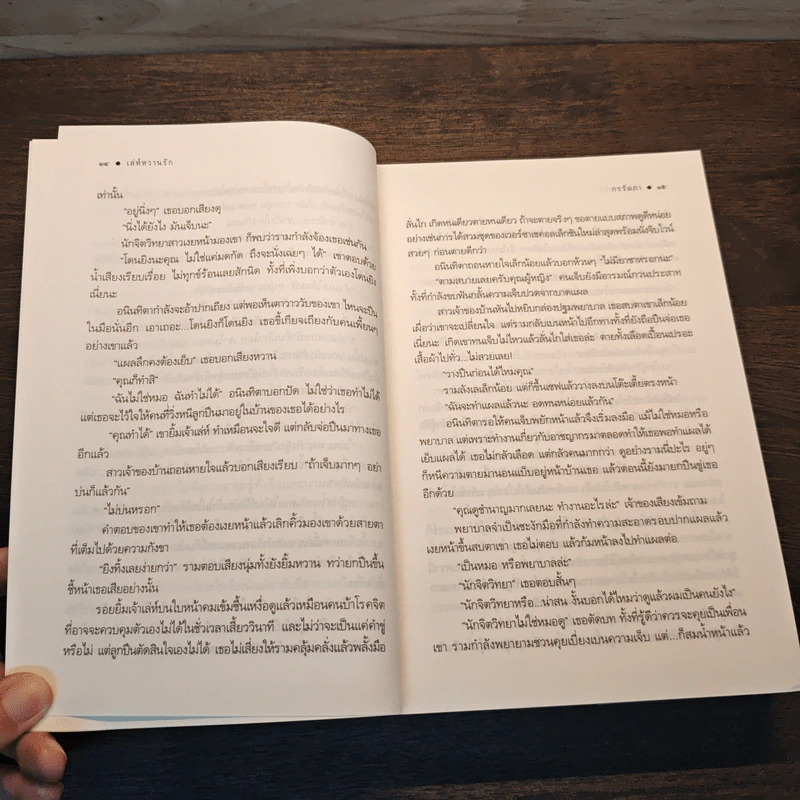 ๑๔ ● เล่ห์หวานรัก
เท่านั้น
“อยู่นิ่งๆ” เธอบอกเสียงดุ
“นิ่งได้ยังไง มันเจ็บนะ”
นักจิตวิทยาสาวเงยหน้ามองเขา ก็พบว่ารามกำลังจ้องเธอเช่นกัน
“โดนยิงนะคุณ ไม่ใช่แค่มดกัด ถึงจะนั่งเฉยๆ ได้” เขาตอบด้วย
น้ำเสียงเรียบเรื่อย ไม่ทุกข์ร้อนเลยสักนิด ทั้งที่เพิ่งบอกว่าตัวเองโดนยิง
เนี่ยนะ
อนินทิตากำลังจะอ้าปากเถียง แต่พอเห็นตาวาววับของเขา ไหนจะปืน
ในมือนั่นอีก เอาเถอะ...โดนยิงก็โดนยิง เธอขี้เกียจเถียงกับคนเพี้ยนๆ
อย่างเขาแล้ว
“แผลลึกคงต้องเย็บ” เธอบอกเสียงหวาน
“คุณก็ทำสิ”
“ฉันไม่ใช่หมอ ฉันทำไม่ได้” อนินทิตาบอกปัด ไม่ใช่ว่าเธอทำไม่ได้
แต่เธอจะไว้ใจให้คนที่วิ่งหนีลูกปืนมาอยู่ในบ้านของเธอได้อย่างไร
“คุณทำได้” เขายิ้มเจ้าเล่ห์ ทำเหมือนจะใจดี แต่กลับจ่อปืนมาทางเธอ
อีกแล้ว
สาวเจ้าของบ้านถอนหายใจแล้วบอกเสียงเรียบ “ถ้าเจ็บมากๆ อย่า
บ่นก็แล้วกัน”
“ไม่บ่นหรอก”
คำตอบของเขาทำให้เธอต้องเงยหน้าแล้วเลิกคิ้วมองเขาด้วยสายตา
ที่เต็มไปด้วยความกังขา
“ยิงทิ้งเลยง่ายกว่า” รามตอบเสียงนุ่มทั้งยังยิ้มหวาน ทว่ายกปืนขึ้น
ชี้หน้าเธอเสียอย่างนั้น
รอยยิ้มเจ้าเล่ห์บนใบหน้าคมเข้มชื้นเหงื่อดูแล้วเหมือนคนบ้าโรคจิต
ที่อาจจะควบคุมตัวเองไม่ได้ในชั่วเวลาเสี้ยววินาที และไม่ว่าจะเป็นแค่คำขู่
หรือไม่ แต่ลูกปืนตัดสินใจเองไม่ได้ เธอไม่เสี่ยงให้รามคลุ้มคลั่งแล้วพลั้งมือ
กรรัมภา ● ๑๕
ลั่นไก เกิดหนเดียวตายหนเดียว ถ้าจะตายจริงๆ ขอตายแบบสภาพดูดีหน่อย
อย่างเช่นการได้สวมชุดของเวอร์ซาเชคอลเล็กชันใหม่ล่าสุดพร้อมนั่งจิบไวน์
สวยๆ ก่อนตายดีกว่า
อนินทิตาถอนหายใจเล็กน้อยแล้วบอกห้วนๆ “ไม่มียาชาหรอกนะ”
“ตามสบายเลยครับคุณผู้หญิง” คนเจ็บยังมีอารมณ์กวนประสาท
ทั้งที่กำลังขบฟันกลั้นความเจ็บปวดจากบาดแผล
สาวเจ้าของบ้านหันไปหยิบกล่องปฐมพยาบาล เธอสบตาเขาเล็กน้อย
เผื่อว่าเขาจะเปลี่ยนใจ แต่รามกลับเบนหน้าไปอีกทางทั้งที่ยังถือปืนจ่อเธอ
เนี่ยนะ เกิดเขาทนเจ็บไม่ไหวแล้วลั่นไกใส่เธอล่ะ ตายทั้งเลือดเปื้อนเปรอะ
เสื้อผ้าไปทั่ว...ไม่สวยเลย!
“วางปืนก่อนได้ไหมคุณ”
รามลังเลเล็กน้อย แต่ก็ขึ้นเซฟแล้ววางลงบนโต๊ะเตี้ยตรงหน้า
“ฉันจะทำแผลแล้วนะ อดทนหน่อยแล้วกัน”
อนินทิตารอให้คนเจ็บพยักหน้าแล้วจึงเริ่มลงมือ แม้ไม่ใช่หมอหรือ
พยาบาล แต่เพราะทำงานเกี่ยวกับอาชญากรมาตลอดทำให้เธอพอทำแผลได้
เย็บแผลได้ เธอไม่กลัวเลือด แต่กลัวคนมากกว่า ดูอย่างรามนี่ปะไร อยู่ๆ
ก็หนีความตายมานอนแบ็บอยู่หน้าบ้านเธอ แล้วตอนนี้ยังมายกปืนขู่เธอ
อีกด้วย
“คุณดูชำนาญมากเลยนะ ทำงานอะไรล่ะ” เจ้าของเสียงเข้มถาม
พยาบาลจำเป็นชะงักมือที่กำลังทำความสะอาดรอบปากแผลแล้ว
เงยหน้าขึ้นสบตาเขา เธอไม่ตอบ แล้วก้มหน้าลงไปทำแผลต่อ
“เป็นหมอ หรือพยาบาลล่ะ”
“นักจิตวิทยา” เธอตอบสั้นๆ
“นักจิตวิทยาหรือ...น่าสน งั้นบอกได้ไหมว่าดูแล้วผมเป็นคนยังไง”
“นักจิตวิทยาไม่ใช่หมอดู” เธอตัดบท ทั้งที่รู้ดีว่าควรจะคุยเป็นเพื่อน
เขา รามกำลังพยายามชวนคุยเบี่ยงเบนความเจ็บ แต่...ก็สมน้ำหน้าแล้ว